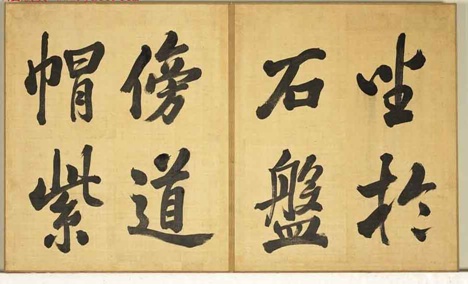 坐於
石盤
傍道
帽紫